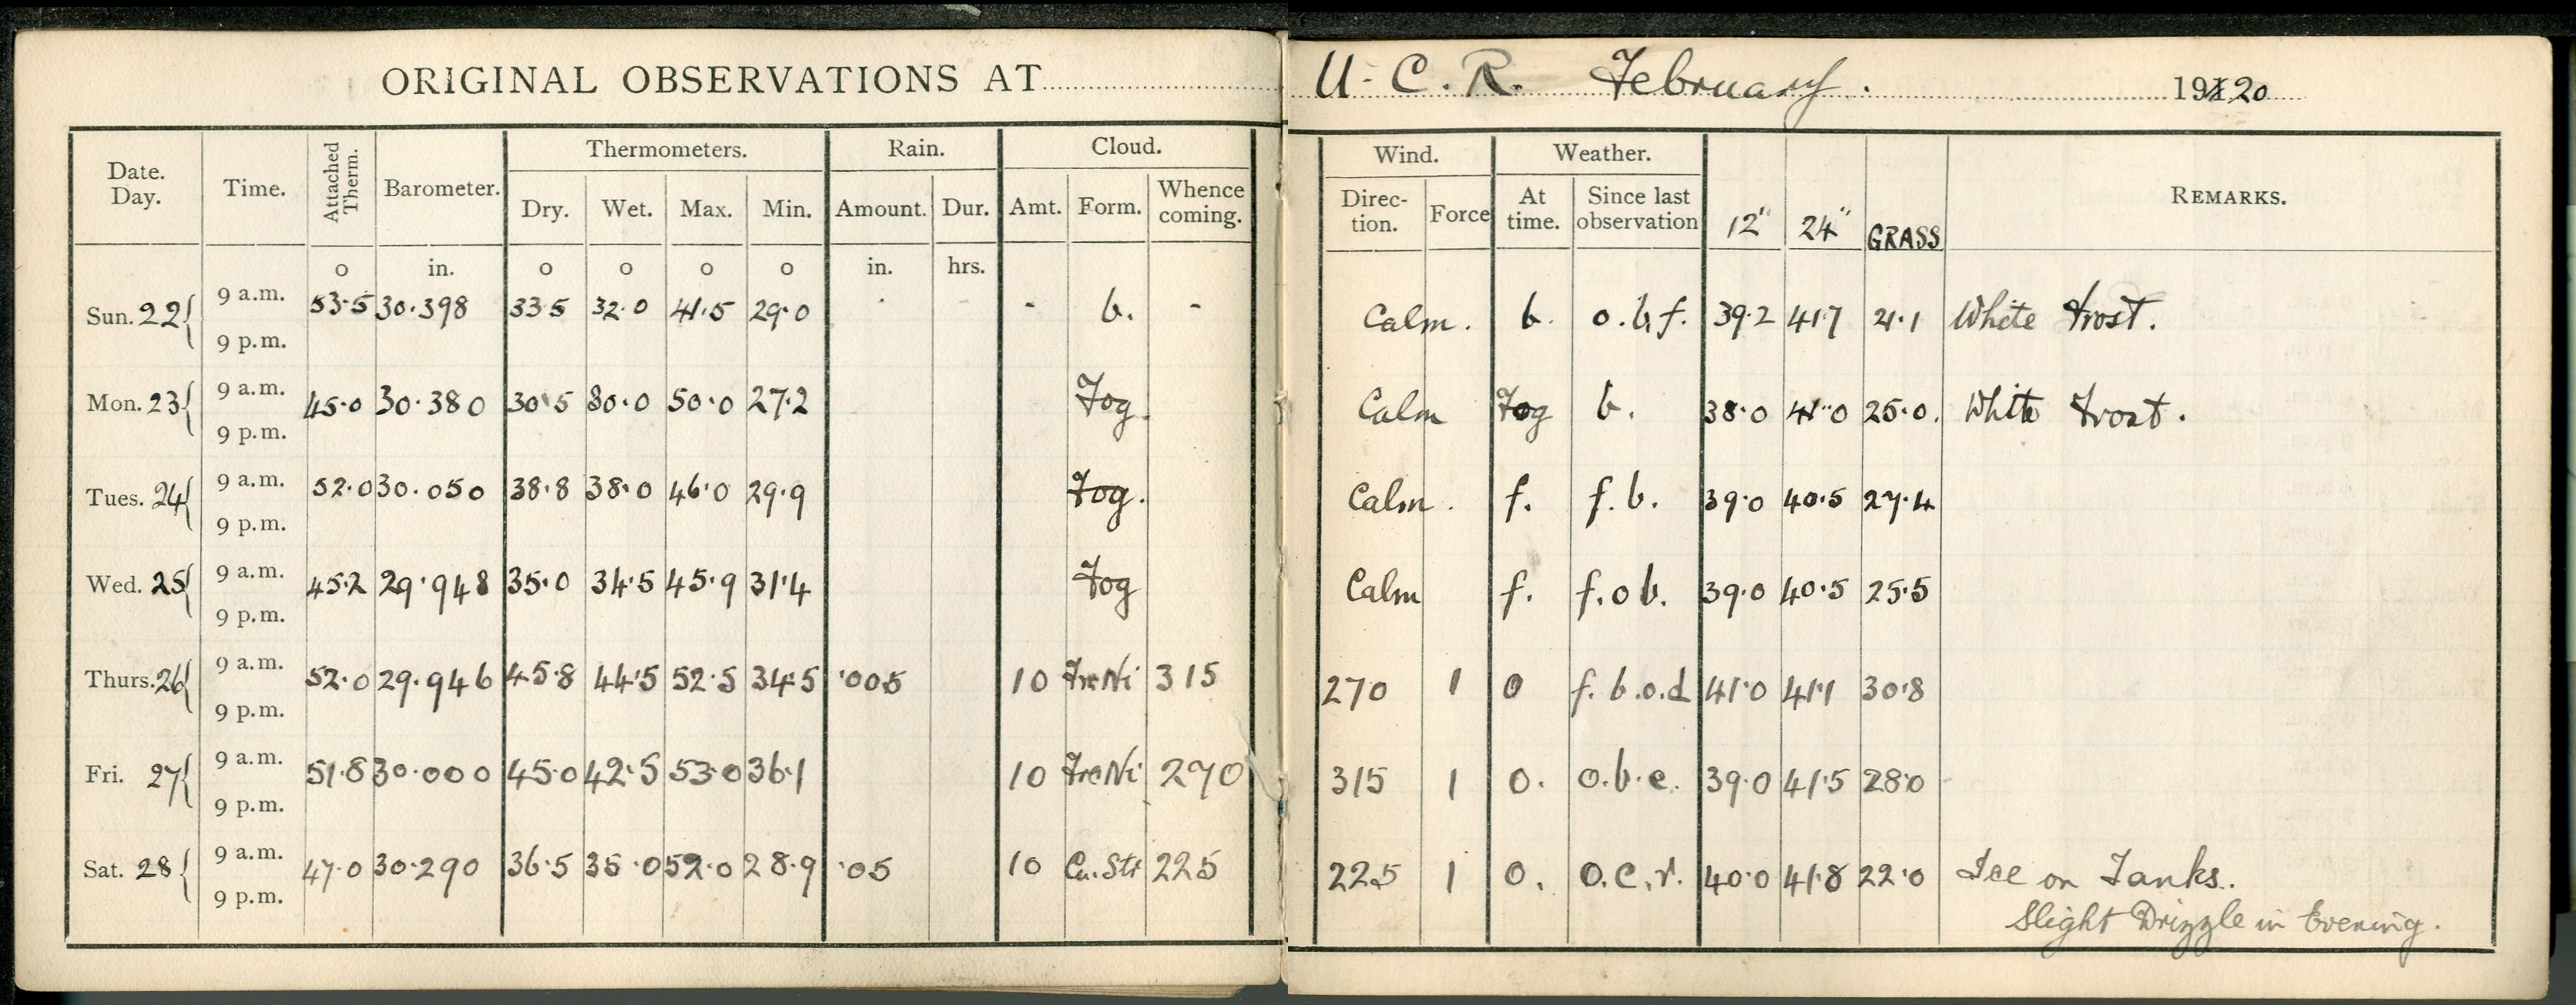 ORIGINAL OBSERVATIONS AT U.C.R. February. 1920
Date. Day. Time. Attached Therm. Barometer. Thermometers. Rain. Cloud. Wind. Weather. REMARKS.
Dry. Wet. Max. Min. Amount. Dur. Amt. Form. Whence coming. Direc- tion. Force At time. Since last observation 12" 24" GRASS
o in. o o o o in. hrs.
Sun. 22 9 a.m. 53.5 30.398 33.5 32.0 41.5 29.0 - - b. - Calm. b. o.b.f. 39.2 41.7 21.1 White Frost.
9 p.m.
Mon. 23 9 a.m. 45.0 30.380 30.5 30.0 50.0 27.2 Fog. Calm Fog b. 38.0 41.0 25.0. White Frost.
9 p.m.
Tues. 24 9 a.m. 52.0 30.050 38.8 38.0 46.0 29.9 Fog. Calm. f. f.b. 39.0 40.5 27.4
9 p.m.
Wed. 25 9 a.m. 45.2 29.948 35.0 34.5 45.9 31.4 Fog Calm f. f.o b. 39.0 40.5 25.5
9 p.m.
Thurs. 26 9 a.m. 52.0 29.946 45.8 44.5 52.5 34.5 .005 10 FrcNi 315 270 1 o f.b.o.d 41.0 41.1 30.8
9 p.m.
Fri. 27 9 a.m. 51.8 30.000 45.0 42.5 53.0 36.1 10 FrcNi 270 315 1 o. o.b.c. 39.0 41.5 28.0
9 p.m.
Sat. 28 9 a.m. 47.0 30.290 36.5 35.0 52.0 28.9 .05 10 Cu.Str 225 225 1 o. o.c.r. 40.0 41.8 22.0 Ice on Tanks.
9 p.m. Slight Drizzle in Evening.